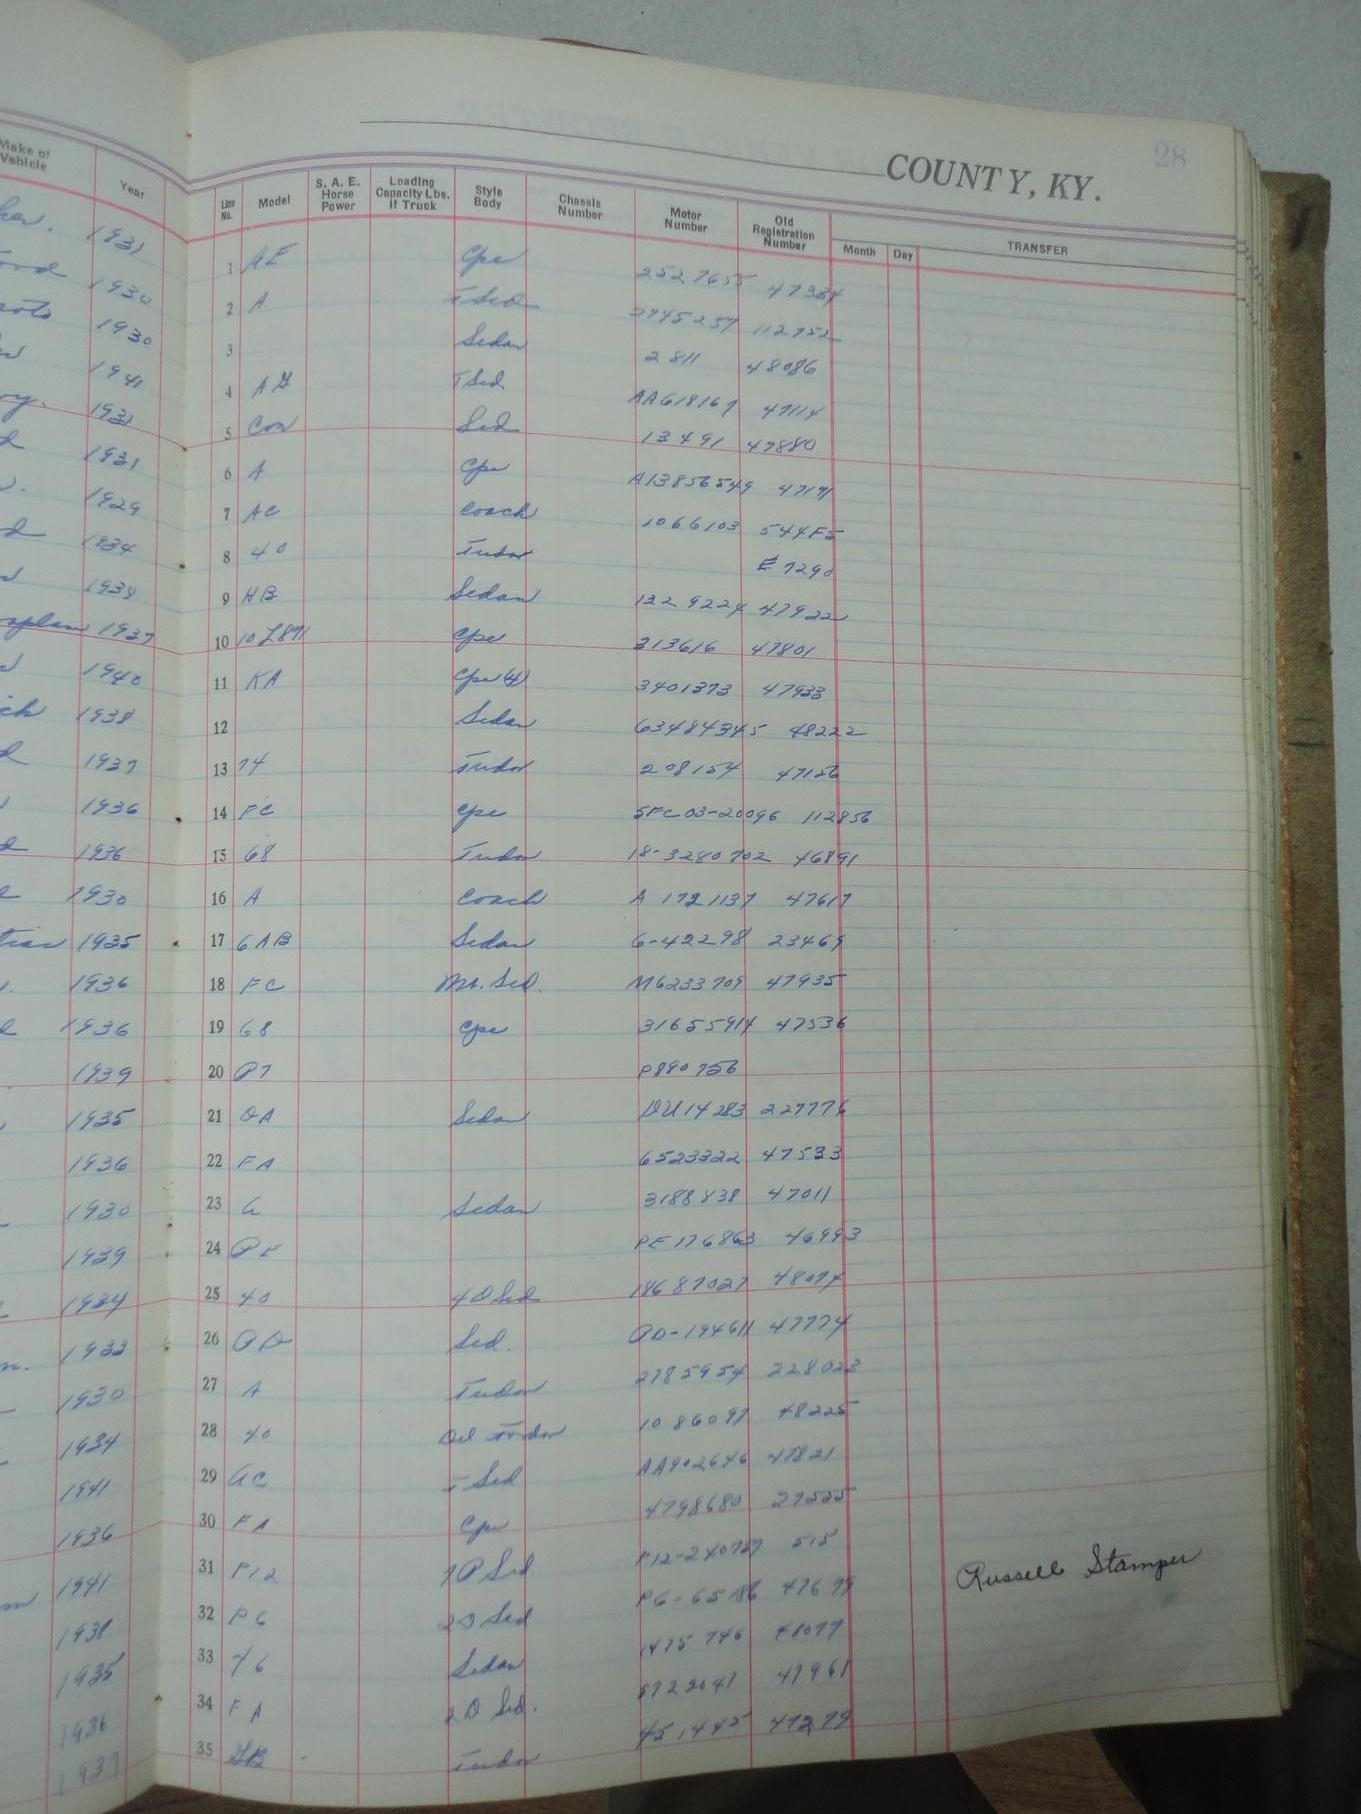 28
COUNTY, KY.
Make of Vehicle Year Line No. Model S. A. E. Horse Power Loading Capacity Lbs. if Truck Style Body Chassis Number Motor Number Old Registration Number Month Day TRANSFER
1931 1 AE Cpe 2527655 47334
1930 2 A T Sed 2745257 112752
1930 3 Sedan 2811 48086
1941 4 AG T Sed AA618167 47114
1931 5 Con Sed 13491 47880
1931 6 A Cpe A13856549 47171
1929 7 AC Coach 1066103 544F5
1934 8 40 Tudor E 7290
1934 9 HB Sedan 1329224 47922
1937 10 Cpe 313616 47801
1940 11 KA Cpe (4) 3401373 47933
1938 12 Sedan 63484345 48222
1937 13 74 Tudor 208154 47126
1936 14 FC Cpe 5FC03-20096 112856
1936 15 68 Tudor 18-3280702 46891
1930 16 A Coach A 1721137 47617
1935 17 6AB Sedan 6-42298 23469
1936 18 FC Mr. Sed. M6233709 47935
1936 19 68 Cpe 31655914 47536
1939 20 P7 P890756
1935 21 OA Sedan DU14283 227776
1936 22 FA 6523322 47533
1930 23 G Sedan 3188838 47011
1939 24 PE PE176863 46993
1934 25 40 4D Sed 18687027 48074
1933 26 PD Sed. PD-194611 47774
1930 27 A Tudor 2785954 228023
1934 28 40 Del Fordor 1086097 48225
1941 29 GC T Sed AA902646 47821
1936 30 FA Cpe 4798680 27555
1941 31 P12 7P Sed. P12-240727 515
1938 32 P6 2D Sed P6-65186 47679 Russell Stamper
1935 33 Y6 Sedan 1475746 48077
1936 34 FA 2D Sed. 5722047 47961
1937 35 GB Tudor 451445 47279